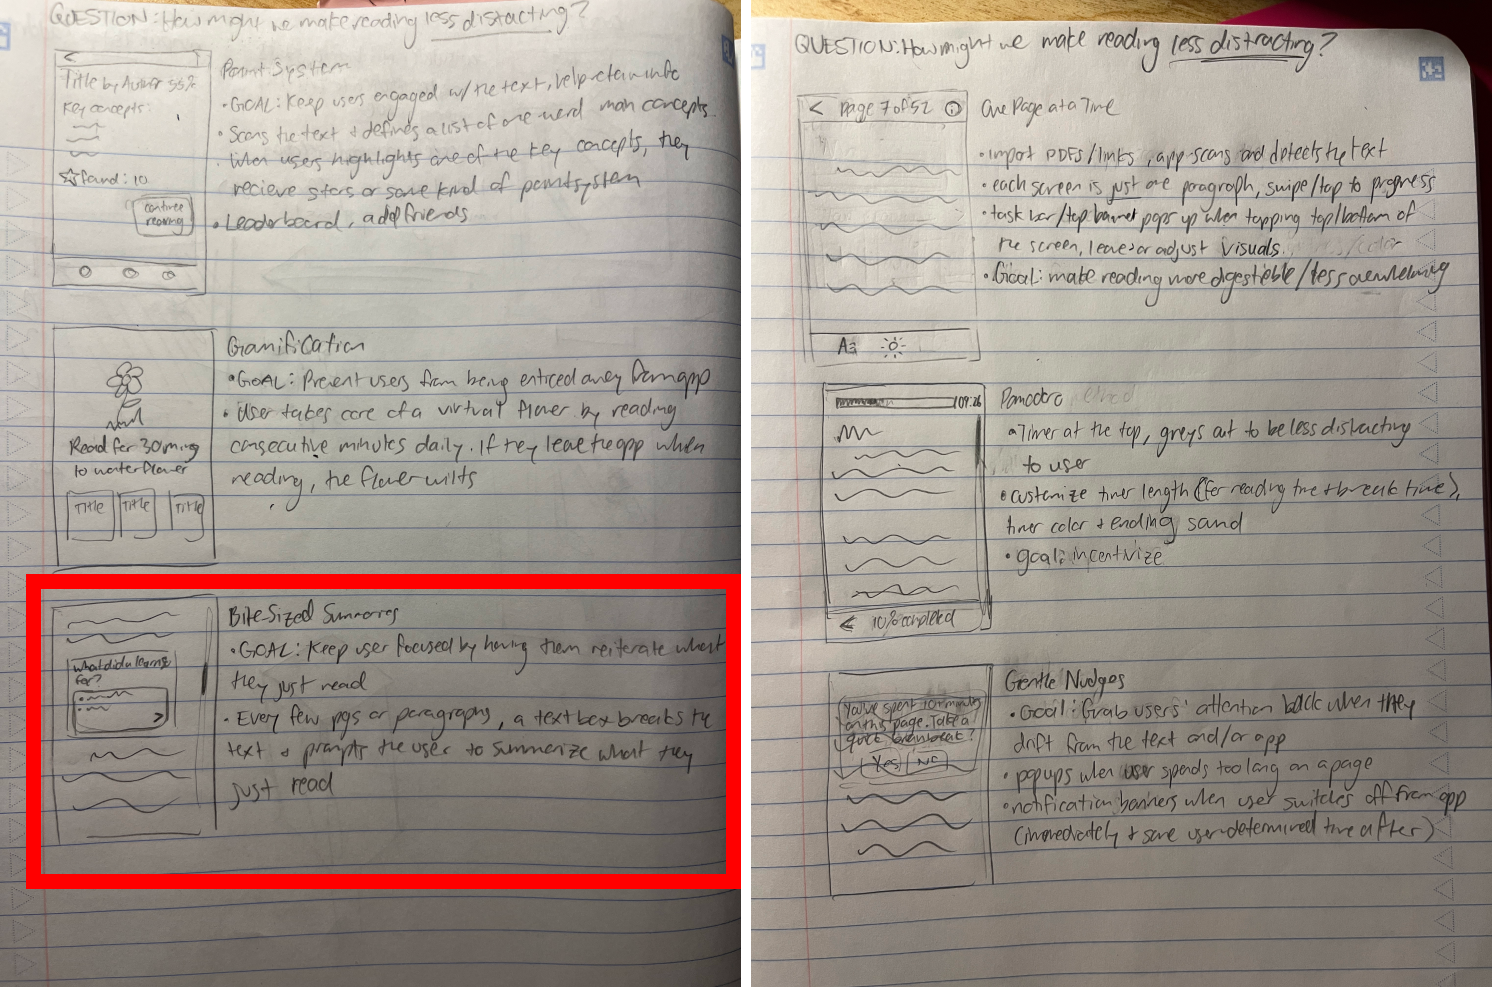 QUESTION: How might we make reading less distracting?
<
Title by Author 55%
Key concepts:
found: 10
continue
reading
Point System
• GOAL: Keep users engaged w/ the text, help retain info
• Scans the text + defines a list of one word main concepts.
• When users highlights one of the key concepts, they
recieve stars or some kind of point system
• Leaderboard, add friends
Read for 30 mins
to water flower
Title
Title
Title
Gamification
• GOAL: Prevent users from being enticed away from app
• User takes care of a virtual flower by reading
consecutive minutes daily. If they leave the app when
reading, the flower wilts
what did u learn
far?
>
Bite-Sized Summaries
• GOAL: Keep user focused by having them reiterate what
they just read
• Every few pgs or paragraphs, a textbox breaks the
text + prompts the user to summarize what they
just read
QUESTION: How might we make reading less distracting?
< page 7 of 52
A
One Page at a Time
• import PDFs/links, app scans and detects the text
• each screen is just one paragraph, swipe/tap to progress
• task bar/top banner pops up when tapping top/bottom of
the screen, leave or adjust visuals. /color
• Goal: make reading more digestible/less overwhelming
09:26
< 10% completed
Pomodoro
• Timer at the top, greys out to be less distracting
to user
• customize timer length (for reading time + break time),
timer color + ending sound
• goal: incentivize
You've spent 10 minutes
on this page. Take a
quick brain break?
Yes
No
Gentle Nudges
• Goal: Grab users' attention back when they
drift from the text and/or app
• popups when user spends too long on a page
• notification banners when user switches off from app
(immediately + some user-determined time after)